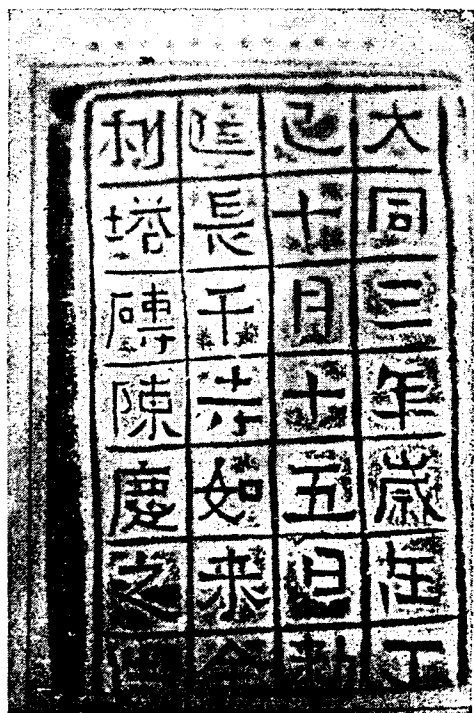 大同三年歲在丁
巳十月十五日勅
造長干寺如来舍
利塔磚陳慶之